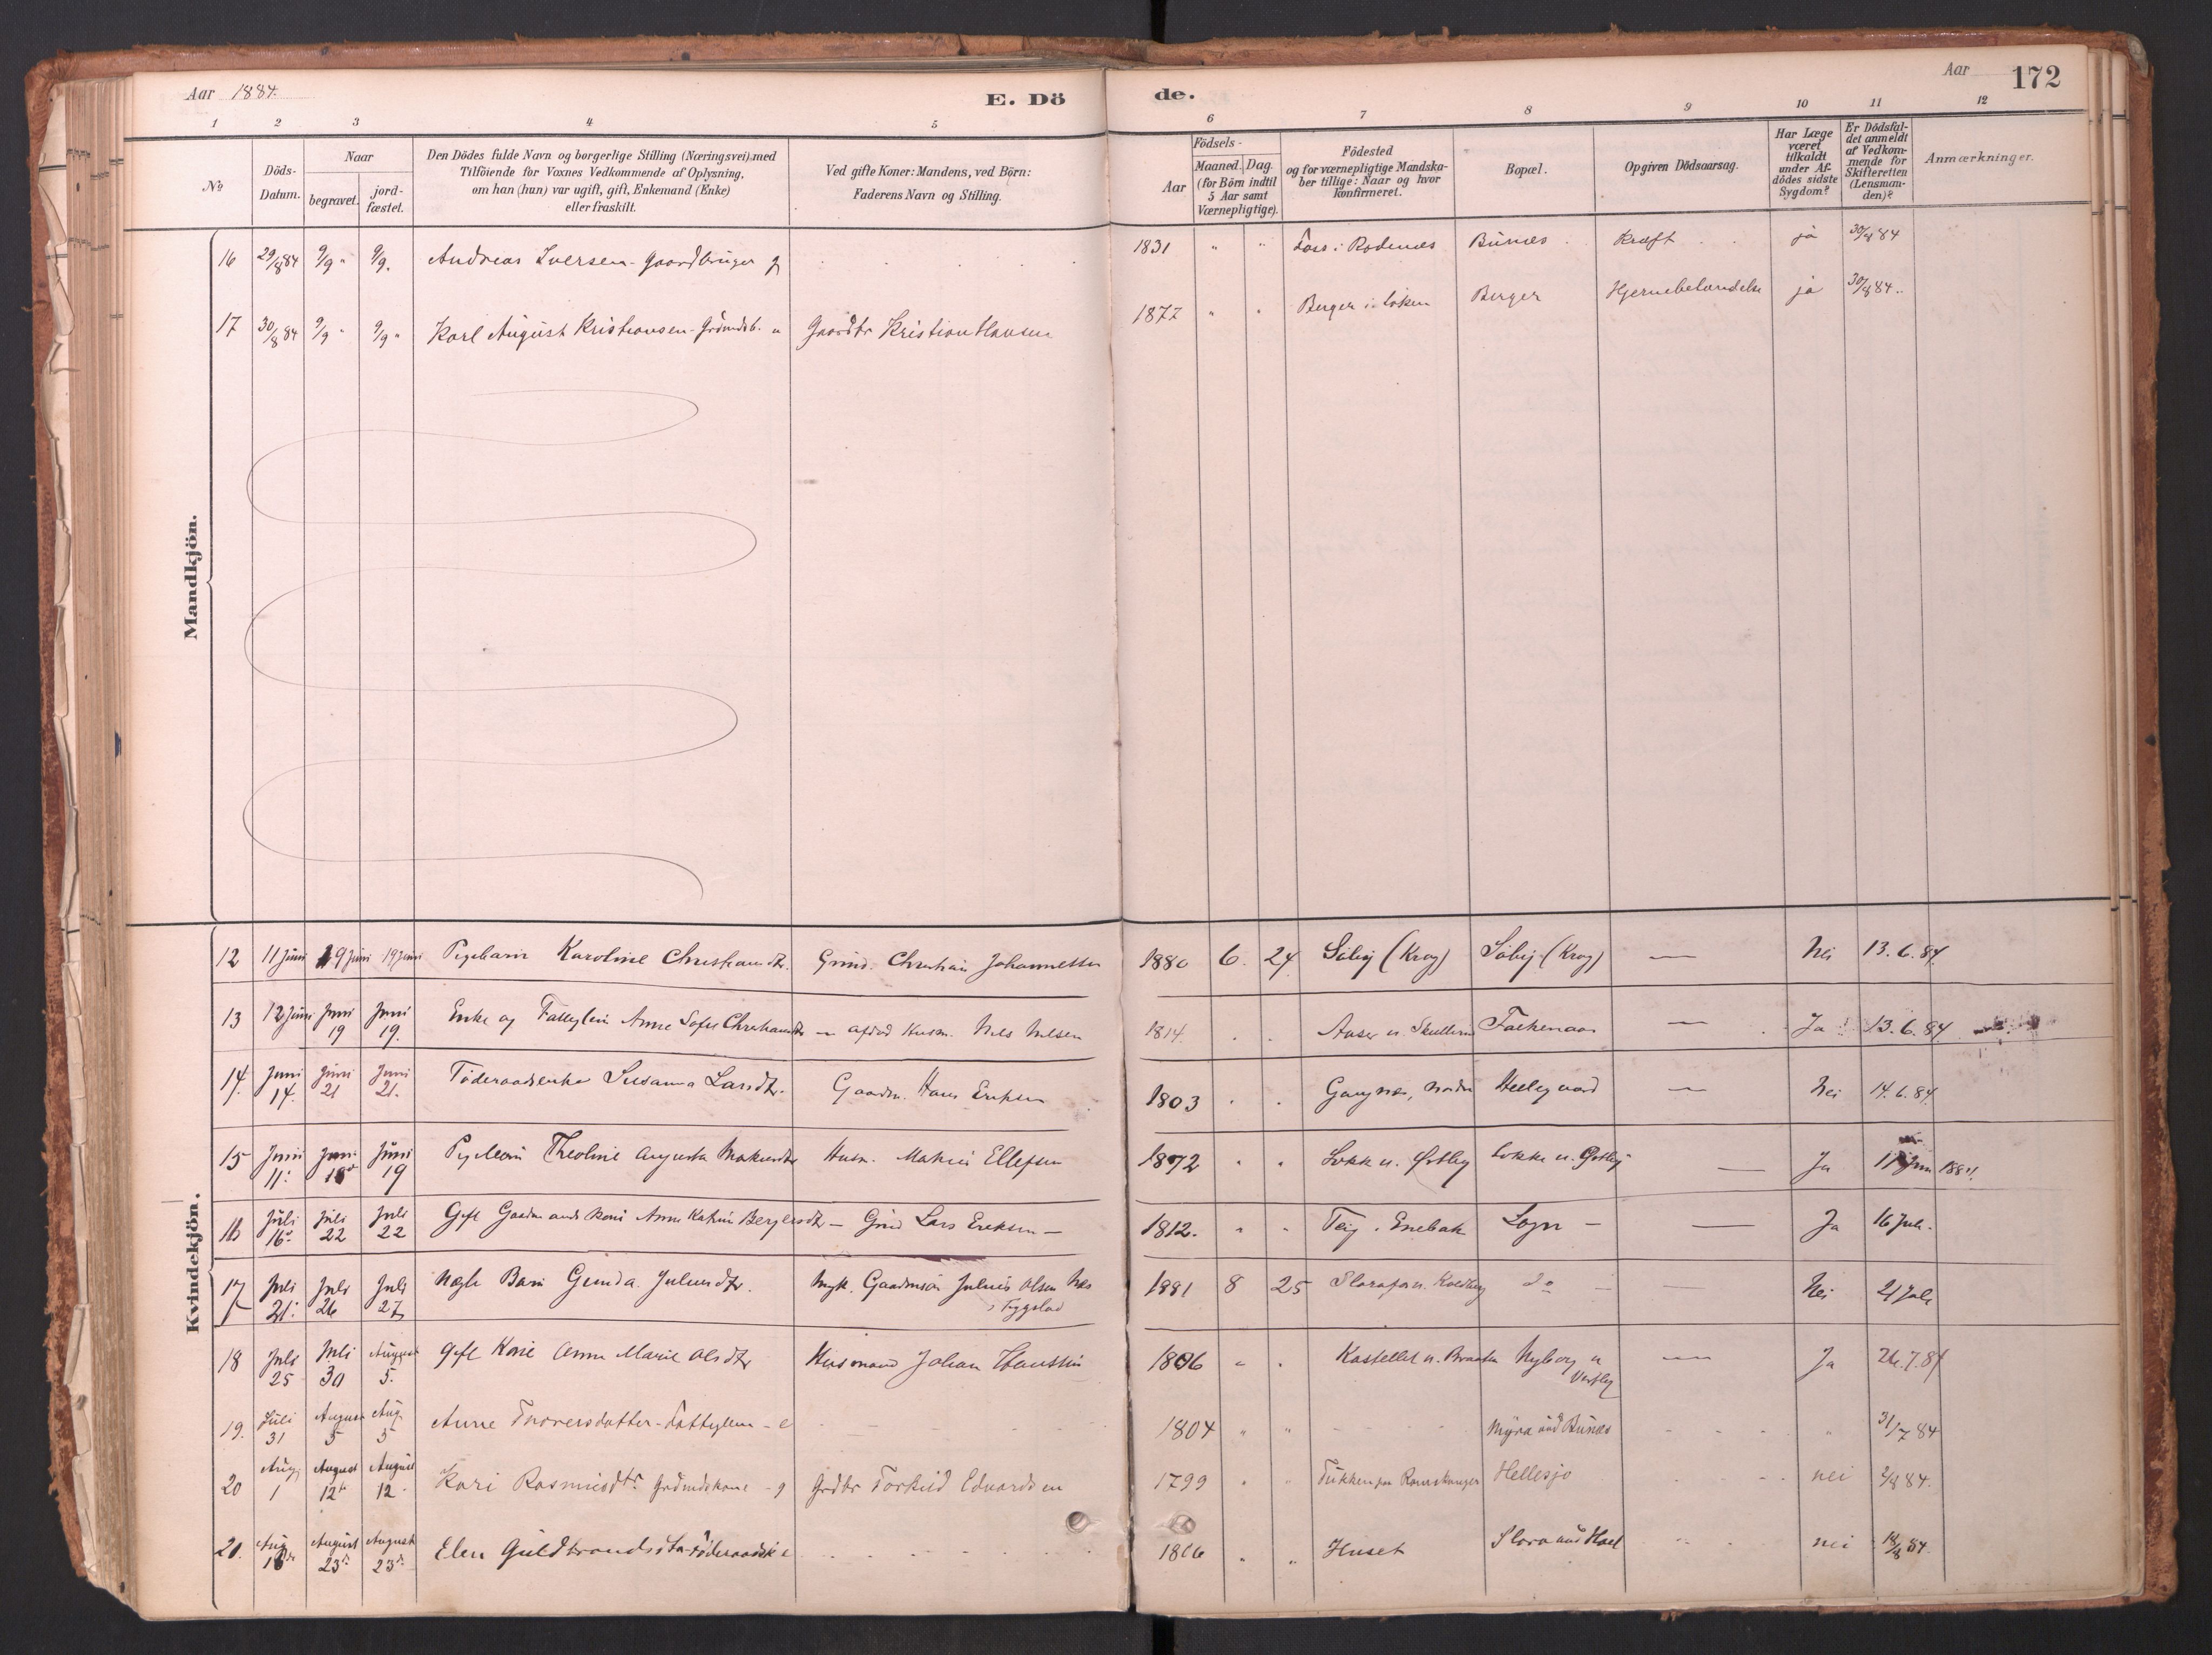 Aar 1884. E. Dö de. Aar 172
1 2 3 4 5 6 7 8 9 10 11 12
No
Döds-Datum.
Naar
begravet.
jord-fæstet.
Den Dödes fulde Navn og borgerlige Stilling (Næringsvei) med
Tilföiende for Voxnes Vedkommende af Oplysning,
om han (hun) var ugift, gift, Enkemand (Enke)
eller fraskilt.
Ved gifte Koner: Mandens, ved Börn:
Faderens Navn og Stilling.
Födsels-
Aar
Maaned. Dag.
(for Börn indtil
5 Aar samt
Værnepligtige).
Födested
og for værnepligtige Mandska-
ber tillige: Naar og hvor
konfirmeret.
Bopæl.
Opgiven Dödsaarsag.
Har Læge
været
tilkaldt
under Af-
dödes sidste
Sygdom?
Er Dödsfal-
det anmeldt
af Vedkom-
mende for
Skifteretten
(Lensman-
den)?
Anmærkninger.
Mandkjön.
16 29/8 84 9/9 " 9/9. Andreas Iversen - Gaardbruger g 1831 " " Foss i Rødenes Bunes Kræft ja 30/8 84
17 30/8 84 9/9 " 9/9 " Karl August Kristiansen - Grdmdsb. u Gaardbr Kristian Hansen 1877 " " Berger i Løken Berger Hjernebetændelse ja 30/8 84
Kvindekjön.
12 11 Juni 19 Juni 19 Juni Pigebarn Karoline Christiansdtr. Grmd. Christian Johannessen 1880 6. 24 (Krog) (Krog) — Nei 13.6.84.
13 12 Juni Juni 19 Juni 19. Enke og Fattiglem Anne Sofie Christiansdtr — afdød Husm. Nils Nilsen 1814. Aaser u. Skullerud — Ja 13.6.84
14. Juni 14. Juni 21 Juni 21. Föderaadsenke Susanna Larsdtr. Gaardm. Hans Eriksen 1803 Gangnæs, nordre — Nei 14.6.84.
15 Juni 11. Juni Juni 19 Pigebarn Theoline Augusta Husm. Ellefsen 1872 Lokk u. Østby Lokke u. Østby — Ja 11 Juni 1884.
16 Juli 16. Juli 22 Juli 22 Gift Gaardmands Kone Anne Katrine Bergersdtr — Grmd Lars Eriksen — 1812. Teig i Enebak — — Ja 16 Juli.
17 Juli 21. Juli 26 Juli 27 Barn Gunda Juliusdtr. Gaardmand Julius Olsen 1881 8 25 do — — Nei 21 Juli
18 Juli 25 Juli 30 August 5. Gift Kone Anne Marie Olsdtr Husmand Johan 1806 Kastellet u. Braaten Nyborg u Vestby — Ja 26.7.84
19. Juli 31 August 5 Aug. 5 Anne Thorersdatter - Fattiglem - e 1804 " " Myra und Bunæs " 31/7 84
20 Aug 1 August 12te August 12 Kari Rasmusdtr Grdmdskone - g Grdbr Torkild Edvardsen 1799 " " Hellesjø nei 2/8 84.
21. Aug August 23de August 23de Elen Guldbrandsdtr Föderaadske e 1806 " " Huset nei 84.